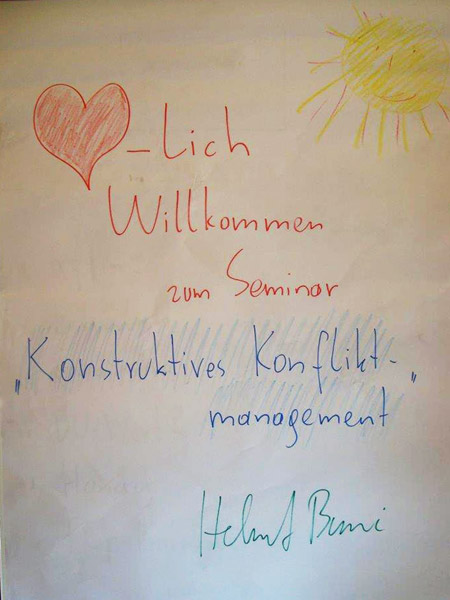 -lich
Willkommen
zum Seminar
„Konstruktives Konflikt-
management"
Helmut